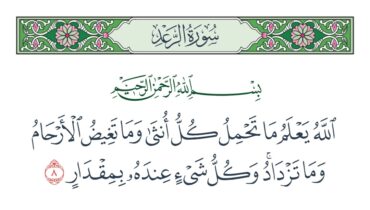 سُورَةُ الرَّعْدِ
بِسْمِ اللَّهِ الرَّحْمَٰنِ الرَّحِيمِ
اللَّهُ يَعْلَمُ مَا تَحْمِلُ كُلُّ أُنثَىٰ وَمَا تَغِيضُ الْأَرْحَامُ
وَمَا تَزْدَادُ ۖ وَكُلُّ شَيْءٍ عِندَهُۥ بِمِقْدَارٍ ٨